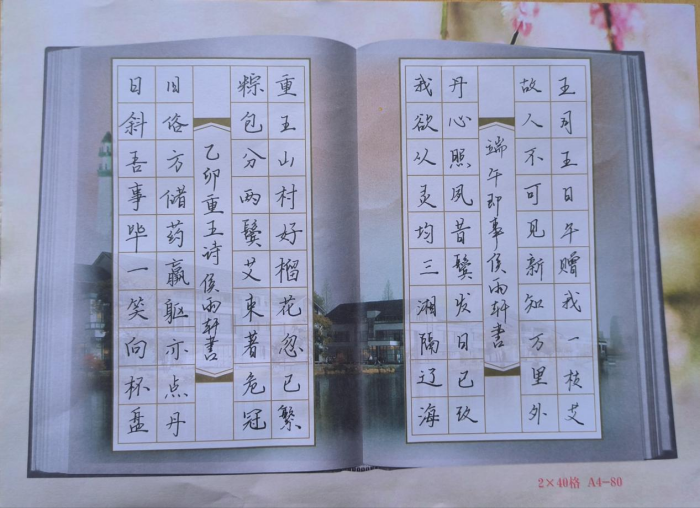 五月五日午赠我一枝艾
故人不可见新知万里外
端午即事侯雨轩书
丹心照夙昔鬓发日已改
我欲从灵均三湘隔辽海
重五山村好榴花忽已繁
粽包分两鬓艾束著危冠
乙卯重五诗侯雨轩书
旧俗方储药羸躯亦点丹
日斜吾事毕一笑向杯盘
2×40格 A4-80